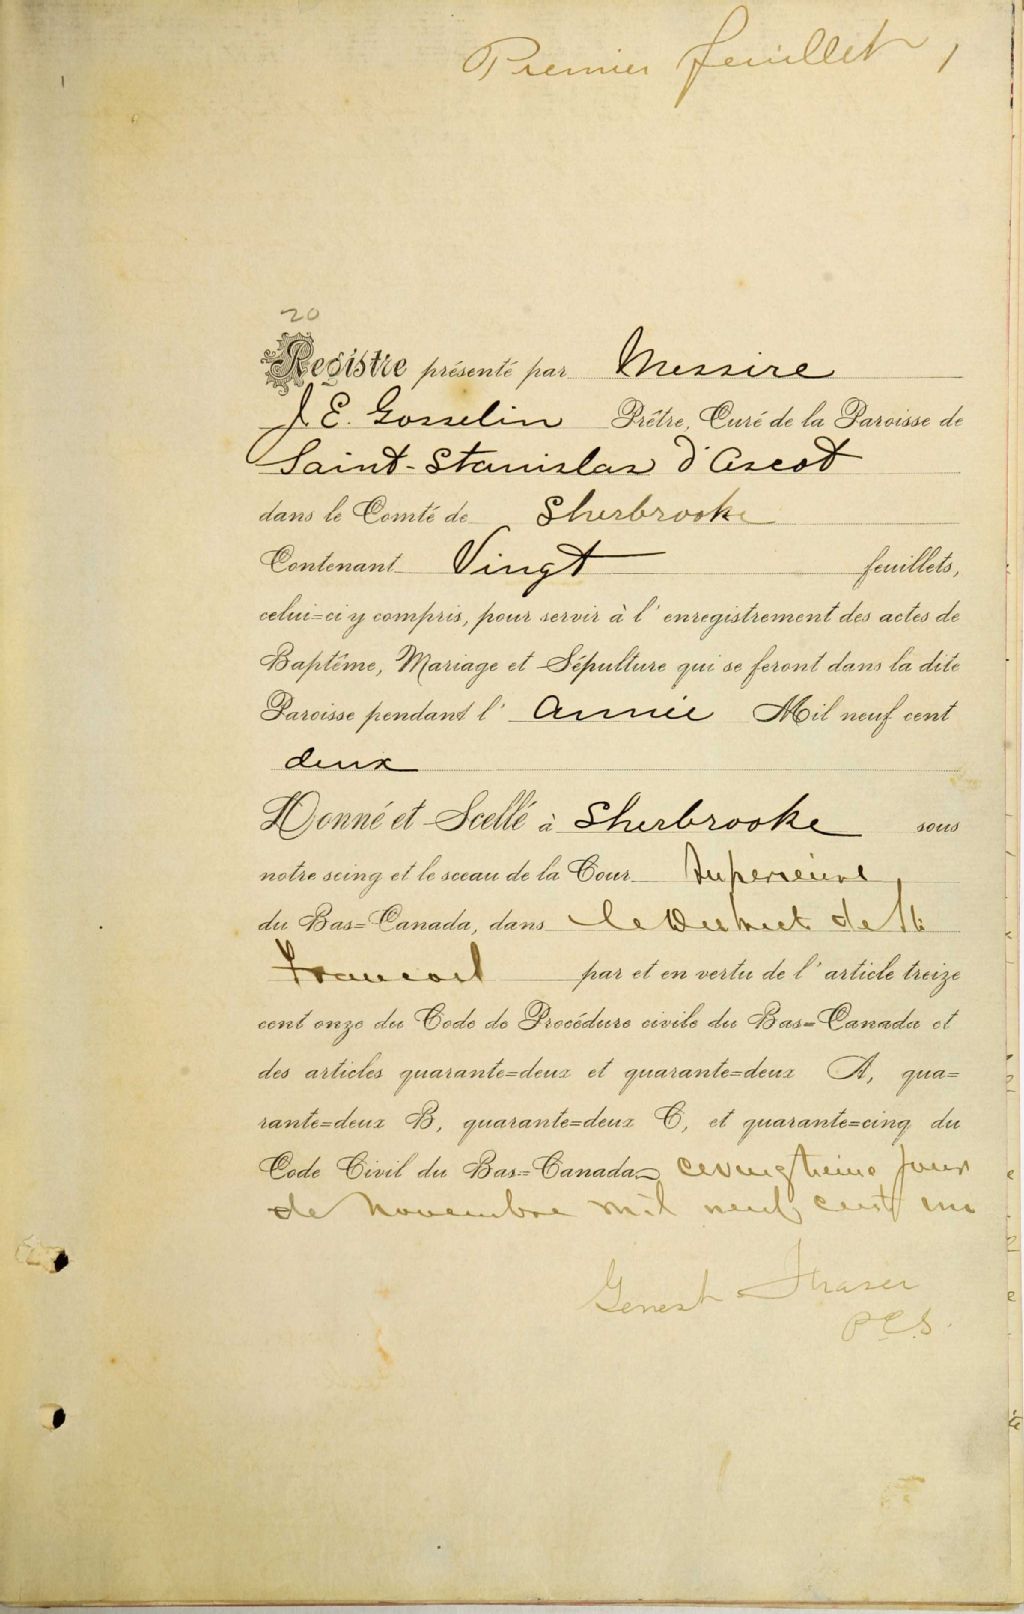 Premier feuillet 1
20
Registre présenté par Messire
J. E. Gosselin Prêtre, Curé de la Paroisse de
Saint-Stanislas d'Ascot
dans le Comté de Sherbrooke
Contenant Vingt feuillets,
celui=ci y compris, pour servir à l'enregistrement des actes de
Baptême, Mariage et Sépulture qui se feront dans la dite
Paroisse pendant l'année Mil neuf cent
deux
Donné et Scellé à Sherbrooke sous
notre seing et le sceau de la Cour Superieure
du Bas=Canada, dans le District de St
Francois par et en vertu de l'article treize
cent onze du Code de Procédure civile du Bas=Canada et
des articles quarante=deux et quarante=deux A, qua=
rante=deux B, quarante=deux C, et quarante=cinq du
Code Civil du Bas=Canada, ce jour
de Novembre mil neuf cent un
Genest Fraser
P.C.S.